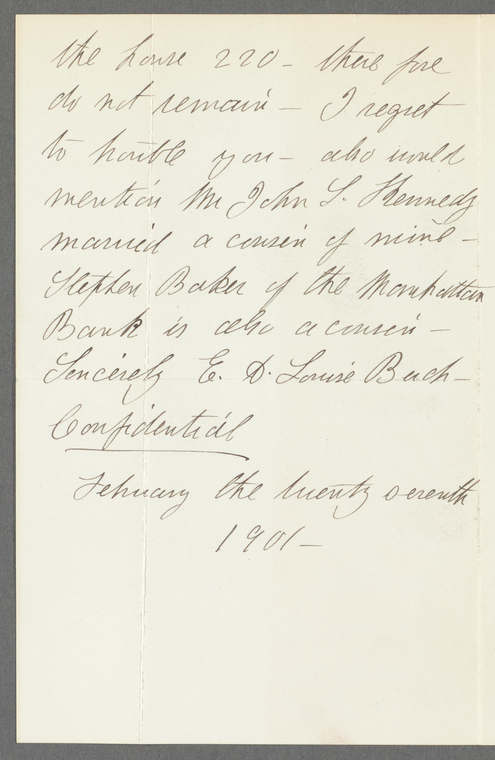 the house 220 - there fore
do not remain - I regret
to trouble you - also would
mention Mr John S. Kennedy
married a cousin of mine -
Stephen Baker of the Manhattan
Bank is also a cousin -
Sincerely E. D. Louise
Confidential
February the twenty seventh
1901 -